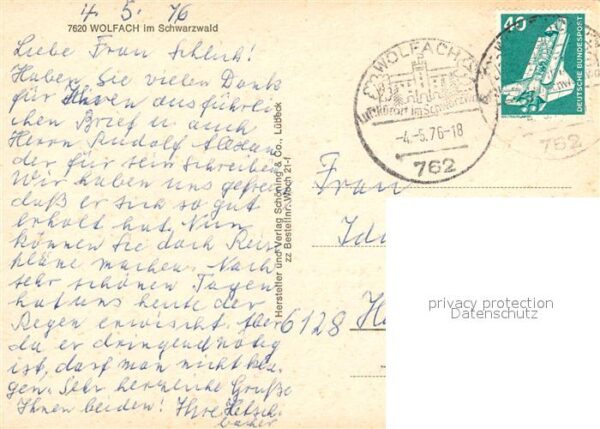 4. 5. 76
7620 WOLFACH im Schwarzwald
Liebe Frau Schlich!
Haben Sie vielen Dank
für Ihren ausführli-
chen Brief u. auch
Herrn Rudolf Alexan
der für sein Schreiben.
Wir haben uns gefreut
daß er sich so gut
erholt hat. Nun
können Sie doch Reise
pläne machen. Nach
sehr schönen Tagen
hat uns heute der
Regen erwischt. Aber
da er dringend nötig
ist, darf man nicht kla-
gen. Sehr herzliche Grüße
Ihnen beiden! Ihre Hetsch-
bacher
Hersteller und Verlag Schöning & Co., Lübeck
zz Bestellnr. Wbch 21-f
WOLFACH
Luftkurort im Schwarzwald
-4.-5.76-18
762
40
DEUTSCHE BUNDESPOST
762
Frau
6128
privacy protection
Datenschutz